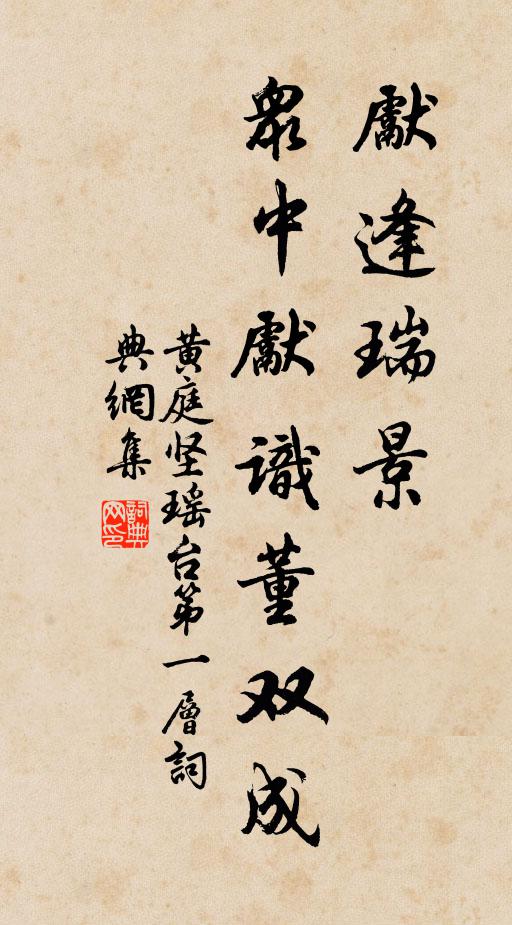 獻逢瑞景
眾中獻識董双成
黄庭坚瑶台第一層詞
典網集
詞典网印